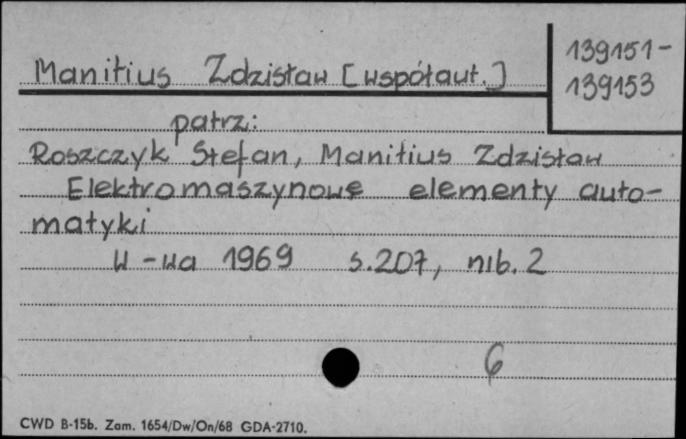 139151-
139153
Manitius Zdzisław [współaut.]
patrz:
Roszczyk Stefan, Manitius Zdzisław
Elektromaszynowe elementy auto-
matyki
W-wa 1969 s.207, nlb.2
6
CWD B-15b. Zam. 1654/Dw/On/68 GDA-2710.